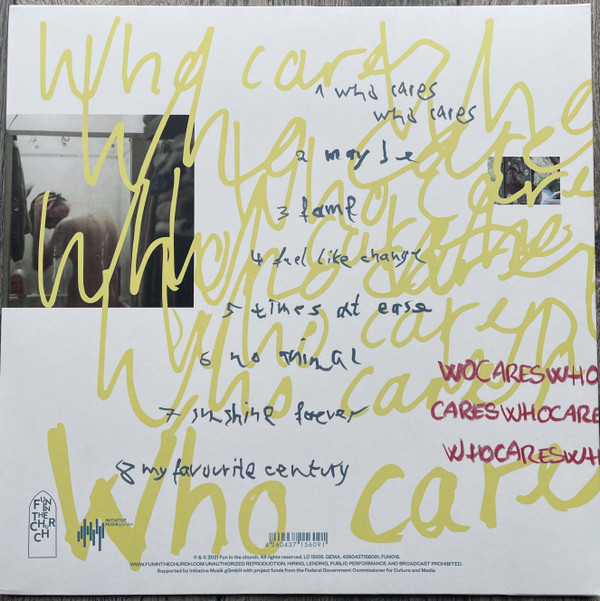 Who cares Who
Who cares
Who cares
Who cares
Who cares
Who care
Who care
1 who cares
who cares
2 maybe
3 fame
4 feel like change
5 times at ease
6 no animal
7 sunshine forever
8 my favourite century
WOCARESWHO
CARESWHOCARE
WHOCARESWH
FUN
IN
THE
CHUR
CH
INITIATIVE
4 260437 156091
℗ & © 2021 Fun in the church. All rights reserved. LC 15105. GEMA. 4260437156091. FUN016.
WWW.FUNINTHECHURCH.COM UNAUTHORIZED REPRODUCTION, HIRING, LENDING, PUBLIC PERFORMANCE AND BROADCAST PROHIBITED.
Supported by Initiative Musik gGmbH with project funds from the Federal Government Commissioner for Culture and Media